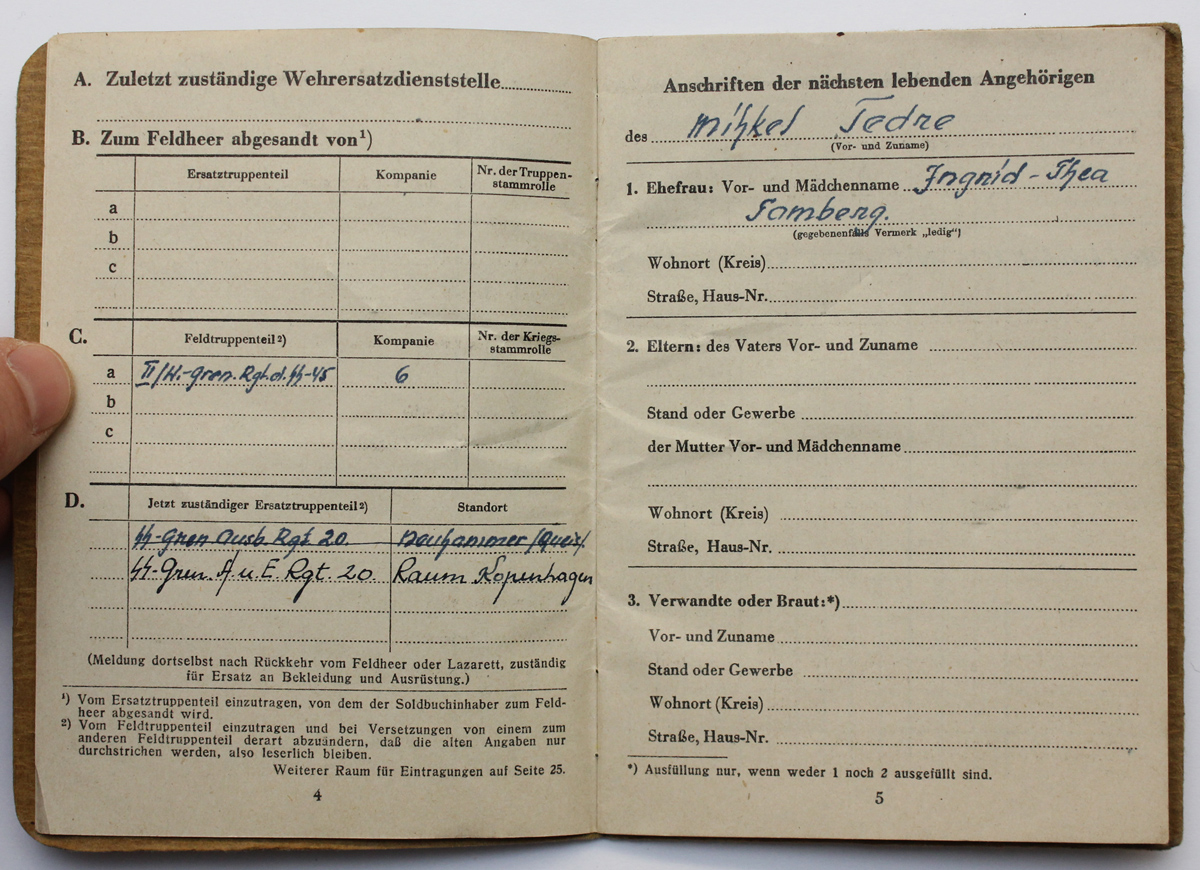 A. Zuletzt zuständige Wehrersatzdienststelle
B. Zum Feldheer abgesandt von¹)
Ersatztruppenteil Kompanie Nr. der Truppen-
stammrolle
a
b
c
C. Feldtruppenteil²) Kompanie Nr. der Kriegs-
stammrolle
a II/W.-Gren.Rgt.d.SS-45 6
b
c
D. Jetzt zuständiger Ersatztruppenteil²) Standort
SS-Gren Ausb. Rgt. 20 Neuhammer/Queis/.
SS-Gren. A. u. E. Rgt. 20. Raum Kopenhagen
(Meldung dortselbst nach Rückkehr vom Feldheer oder Lazarett, zuständig
für Ersatz an Bekleidung und Ausrüstung.)
¹) Vom Ersatztruppenteil einzutragen, von dem der Soldbuchinhaber zum Feld-
heer abgesandt wird.
²) Vom Feldtruppenteil einzutragen und bei Versetzungen von einem zum
anderen Feldtruppenteil derart abzuändern, daß die alten Angaben nur
durchstrichen werden, also leserlich bleiben.
Weiterer Raum für Eintragungen auf Seite 25.
4
Anschriften der nächsten lebenden Angehörigen
des Mihkel Tedre
(Vor- und Zuname)
1. Ehefrau: Vor- und Mädchenname Ingrid-Thea
Tomberg.
(gegebenenfalls Vermerk „ledig")
Wohnort (Kreis)
Straße, Haus-Nr.
2. Eltern: des Vaters Vor- und Zuname
Stand oder Gewerbe
der Mutter Vor- und Mädchenname
Wohnort (Kreis)
Straße, Haus-Nr.
3. Verwandte oder Braut:*)
Vor- und Zuname
Stand oder Gewerbe
Wohnort (Kreis)
Straße, Haus-Nr.
*) Ausfüllung nur, wenn weder 1 noch 2 ausgefüllt sind.
5